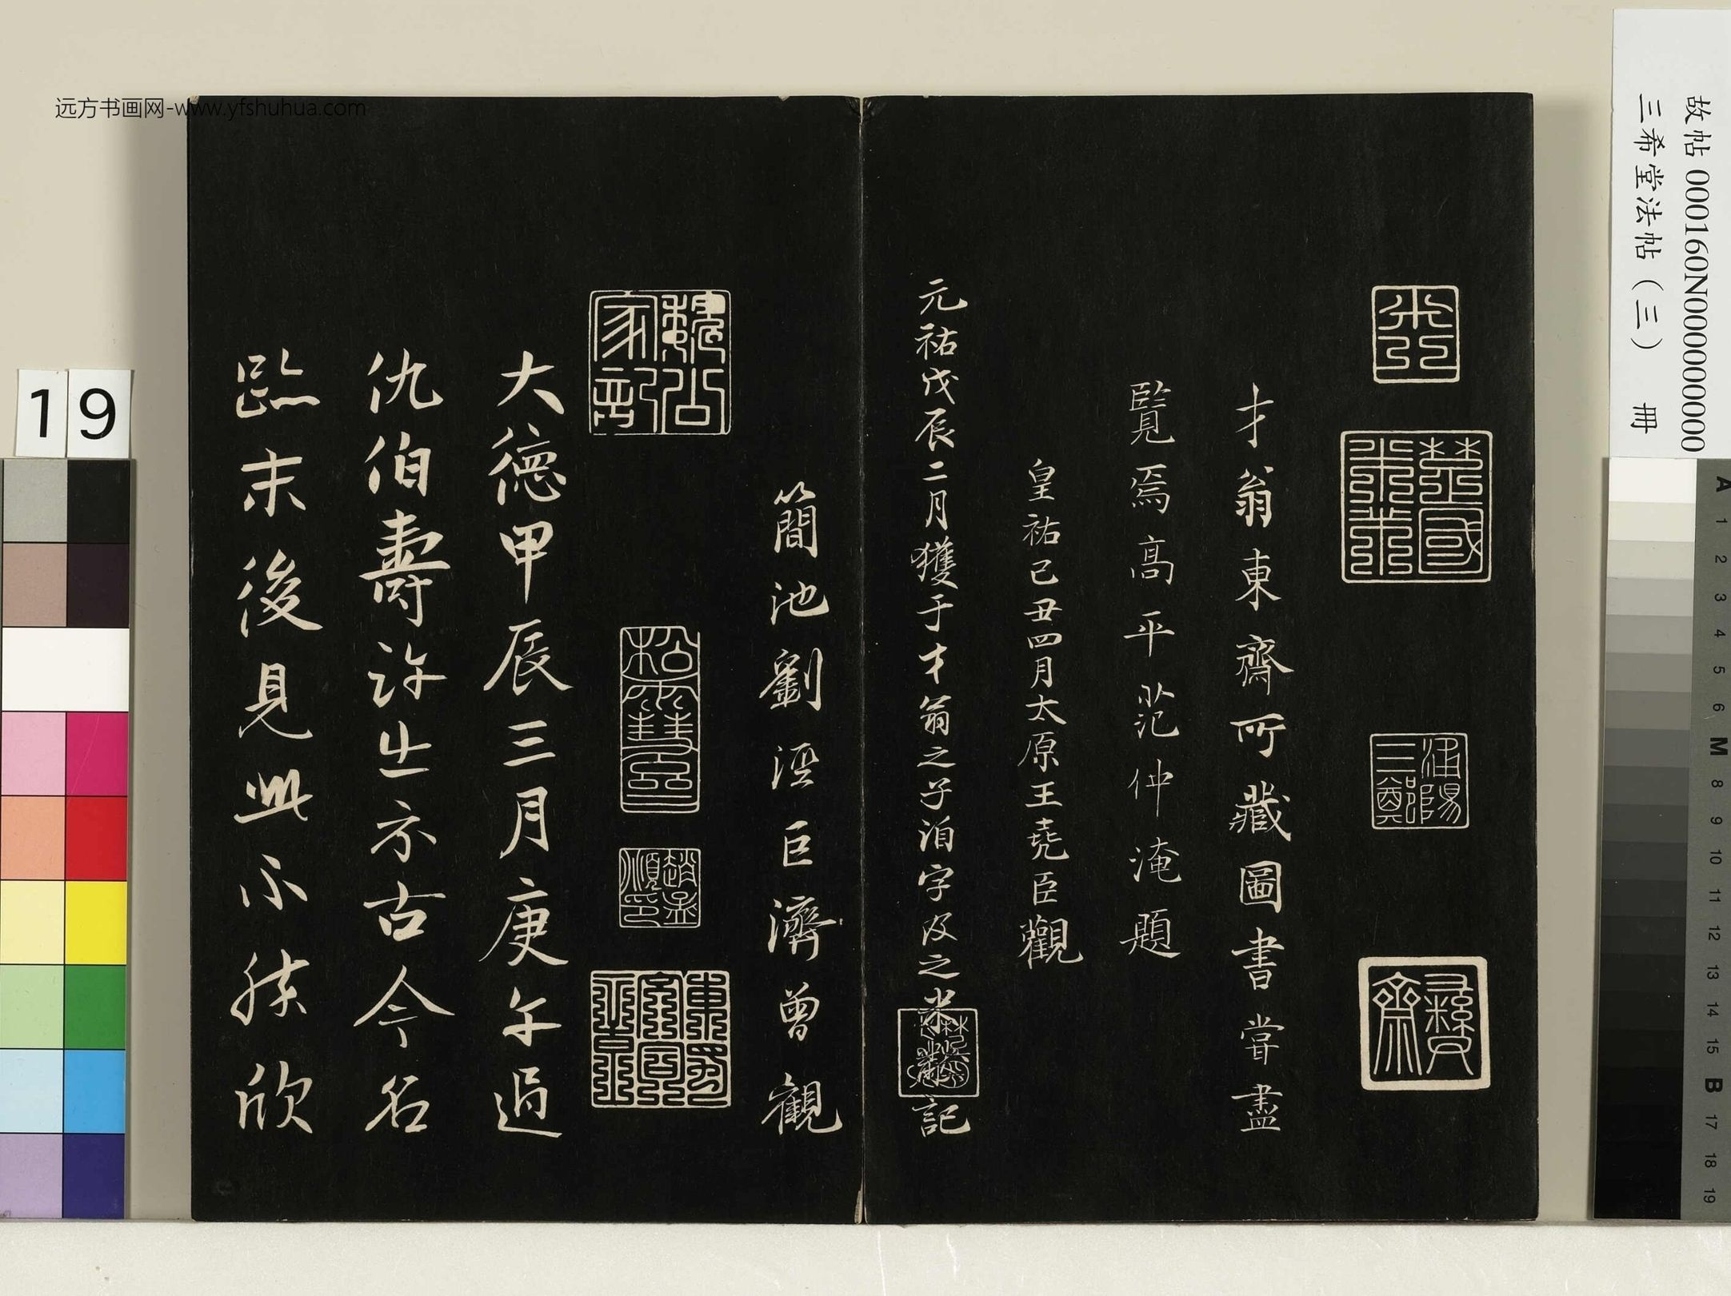 远方书画网-www.yfshuhua.com
故帖 000160N000000000
三希堂法帖（三） 册
楚國米芾
才翁東齋所藏圖書嘗盡
覽焉高平范仲淹題
皇祐己丑四月太原王堯臣觀
元祐戊辰二月獲于才翁之子洎字及之米黻記
簡池劉涇巨濟曾觀
趙孟頫印
大德甲辰三月庚午過
仇伯壽許出示古今名
跡末後見此不勝欣
19
A 1 2 3 4 5 6 M 8 9 10 11 12 13 14 15 B 17 18 19